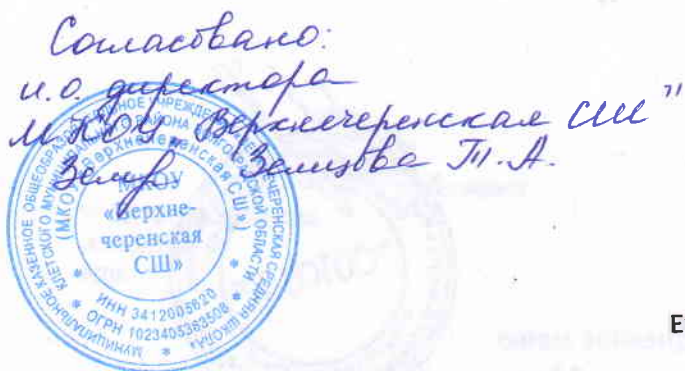 Согласовано:
и.о. директора
МКОУ „Верхнечеренская СШ"
Земцова Т.А.
МУНИЦИПАЛЬНОЕ КАЗЕННОЕ ОБЩЕОБРАЗОВАТЕЛЬНОЕ УЧРЕЖДЕНИЕ «ВЕРХНЕЧЕРЕНСКАЯ СРЕДНЯЯ ШКОЛА»
КЛЕТСКОГО МУНИЦИПАЛЬНОГО РАЙОНА ВОЛГОГРАДСКОЙ ОБЛАСТИ
(МКОУ «Верхнечеренская СШ»)
МКОУ
«Верхне-
черенская
СШ»
ИНН 3412005620
ОГРН 1023405363508
Е